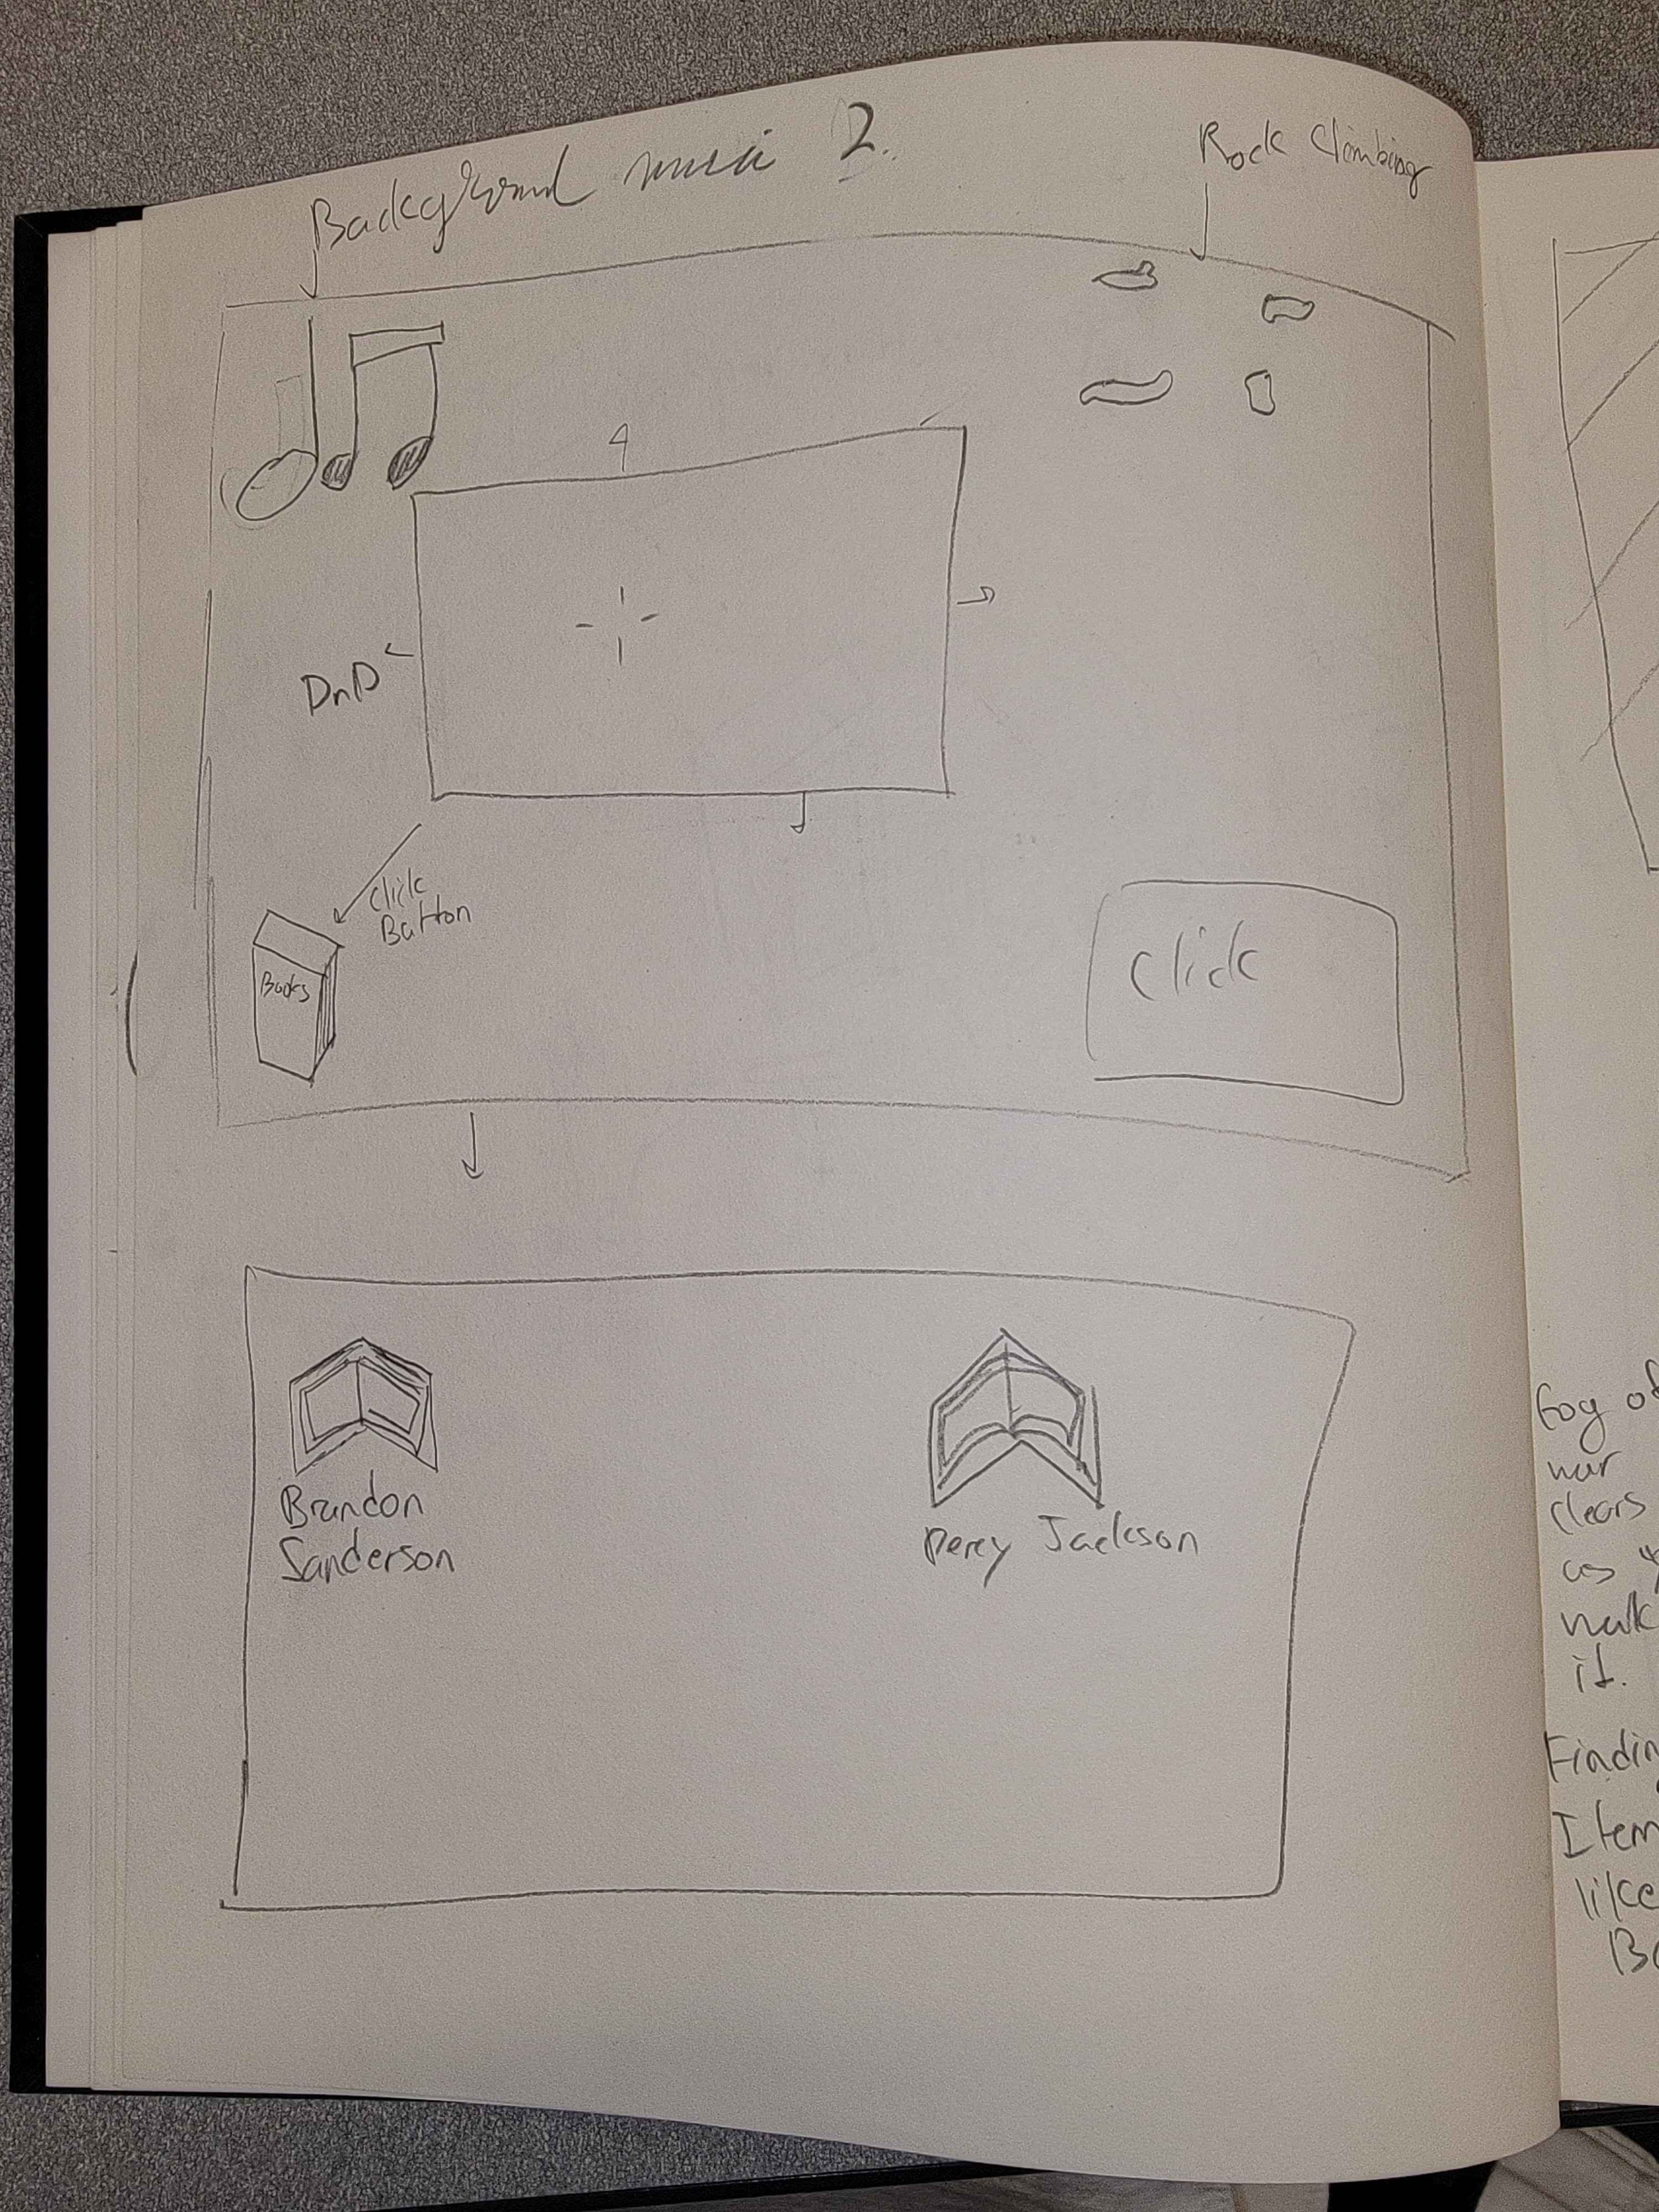 Background music 2.
Rock Climbing
DnD
Click
Button
Books
Click
Brandon
Sanderson
Percy Jackson
Fog of
war
clears
as
walk
it.
Findin
Item
like